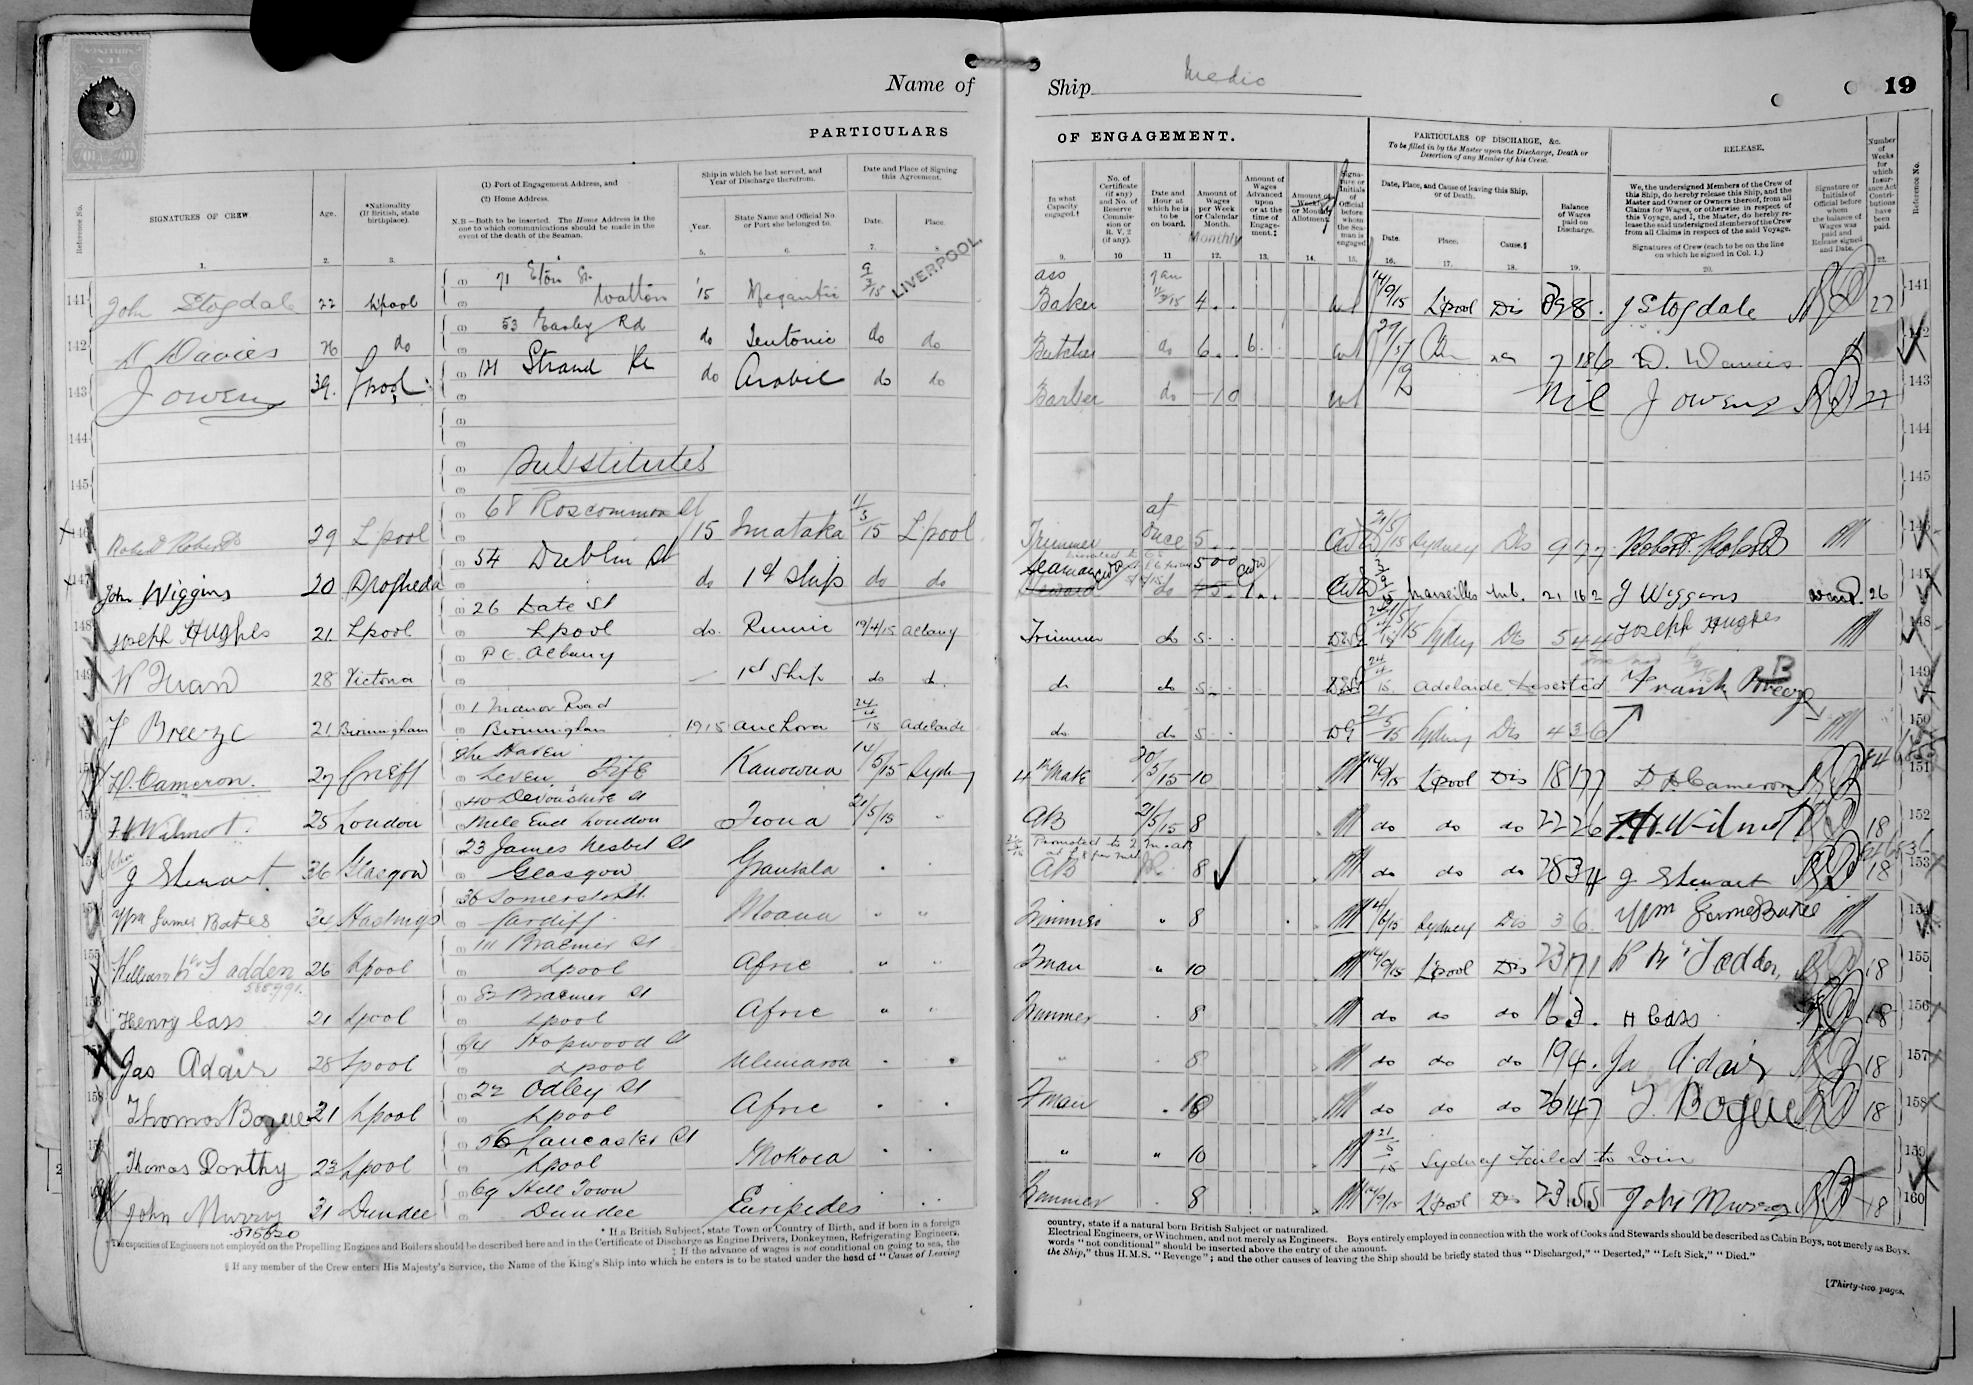 Name of Ship Medic 19
PARTICULARS OF ENGAGEMENT.
PARTICULARS OF DISCHARGE, &c.
To be filled in by the Master upon the Discharge, Death or Desertion of any Member of his Crew.
RELEASE.
Reference No.
SIGNATURES OF CREW
Age.
*Nationality (If British, state birthplace).
(1) Port of Engagement Address, and
(2) Home Address.
N.B.—Both to be inserted. The Home Address is the one to which communications should be made in the event of the death of the Seaman.
Ship in which he last served, and Year of Discharge therefrom.
Year.
State Name and Official No. or Port she belonged to.
Date and Place of Signing this Agreement.
Date.
Place.
In what Capacity engaged.†
No. of Certificate (if any) and No. of Reserve Commission or R. V. 2 (if any).
Date and Hour at which he is to be on board.
Amount of Wages per Week or Calendar Month.
Monthly
Amount of Wages Advanced upon or at the time of Engagement.‡
Amount of Weekly or Monthly Allotment.
Signature or Initials of Official before whom the Seaman is engaged
Date, Place, and Cause of leaving this Ship, or of Death.
Date.
Place.
Cause.§
Balance of Wages paid on Discharge.
We, the undersigned Members of the Crew of this Ship, do hereby release this Ship, and the Master and Owner or Owners thereof, from all Claims for Wages, or otherwise in respect of this Voyage, and I, the Master, do hereby release the said undersigned Members of the Crew from all Claims in respect of the said Voyage.
Signatures of Crew (each to be on the line on which he signed in Col. 1.)
Signature or Initials of Official before whom the balance of Wages was paid and Release signed and Date.
Number of Weeks for which Insurance Act Contributions have been paid.
Reference No.
1. 2. 3. 5. 6. 7. 8. 9. 10 11 12. 13. 14. 15. 16. 17. 18. 19. 20. 22.
LIVERPOOL.
141 John Stogdale 22 Lpool 71 Eton St. Walton '15 Megantic 9/3/15 Baker 4 14/9/15 L'pool Dis J Stogdale 27 141
142 D Davies do 53 Earley Rd do Teutonic do do Butcher do 6 6 7 18 6 142
143 J Owens 39 Lpool 121 Strand Rd do Arabic do do Barber do Nil J Owens 27 143
144 144
145 Substitutes 145
146 Robert Roberts 29 Lpool 68 Roscommon St 15 Imataka 11/3/15 Lpool Trimmer at once 5 21/5/15 Sydney Dis 9 17 7 Robert Roberts 146
147 John Wiggins 20 Drogheda 54 Dublin St do 1st Ship do do Seaman do Marseilles 21 16 2 J Wiggins 26 147
148 Joseph Hughes 21 Lpool 26 Date St Lpool do. Runic 19/4/15 Albany Trimmer do 5 Sydney Dis 5 4 4 Joseph Hughes 148
149 28 Victoria P.O. Albany 1st Ship do do do do 5 24/4/15 Adelaide Deserted Frank Breeze 149
F Breeze 21 Birmingham 1 Manor Road Birmingham 1915 Anchora 24/4/15 Adelaide do do 5 21/5/15 Sydney Dis 4 3 6 150
D. Cameron. 27 Crieff The Haven Leven Fife Kanowna 14/5/15 Sydney 4th Mate 20/5/15 10 14/9/15 L'pool Dis 18 17 7 D Cameron 151
F H Wilmot. 25 London 40 Devonshire St Mile End London Fiona 21/5/15 " AB 21/5/15 8 do do do 22 2 6 F.H. Wilmot 18 152
John J Stewart 36 Glasgow 23 James Nesbit St Glasgow Grantala Promoted to 2 AB 8 do do do 28 3 4 J Stewart 18 153
Wm James Bates 34 Hastings 36 Somerset St. Cardiff Moana " " Trimmer " 8 Sydney Dis 3 6 Wm James Bates 154
155 William McFadden 26 Lpool 111 Braemer St Lpool Afric " " Fman " 10 14/9/15 L'pool Dis 23 17 1 McFadden 18 155
Henry Cass 21 Lpool 83 Braemer St Lpool Afric " " Trimmer 8 do do do 16 3 H Cass 18 156
Jas Adair 28 Lpool 94 Hopwood St Lpool Ulimaroa " 8 do do do 19 4 Ja Adair 18 157
158 Thomas Bogue 21 Lpool 22 Odley St Lpool Afric Fman do do do 26 14 7 T. Bogue 18 158
Thomas Dorthy 23 Lpool 56 Lancaster St Lpool Mokoia " " 10 21/5/15 Sydney Failed to Join 159
John Murray 31 Dundee 69 Hill Town Dundee Euripides Trimmer 8 14/9/15 L'pool Dis 23 15 5 John Murray 18 160
515620
* If a British Subject, state Town or Country of Birth, and if born in a foreign country, state if a natural born British Subject or naturalized.
† The capacities of Engineers not employed on the Propelling Engines and Boilers should be described here and in the Certificate of Discharge as Engine Drivers, Donkeymen, Refrigerating Engineers, Electrical Engineers, or Winchmen, and not merely as Engineers. Boys entirely employed in connection with the work of Cooks and Stewards should be described as Cabin Boys, not merely as Boys.
‡ If the advance of wages is not conditional on going to sea, the words "not conditional" should be inserted above the entry of the amount.
§ If any member of the Crew enters His Majesty's Service, the Name of the King's Ship into which he enters is to be stated under the head of "Cause of Leaving the Ship," thus H.M.S. "Revenge"; and the other causes of leaving the Ship should be briefly stated thus "Discharged," "Deserted," "Left Sick," "Died."
[Thirty-two pages.